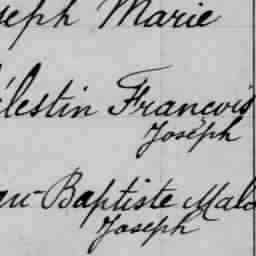 seph Marie
élestin Francois
Joseph
an-Baptiste Malo
Joseph